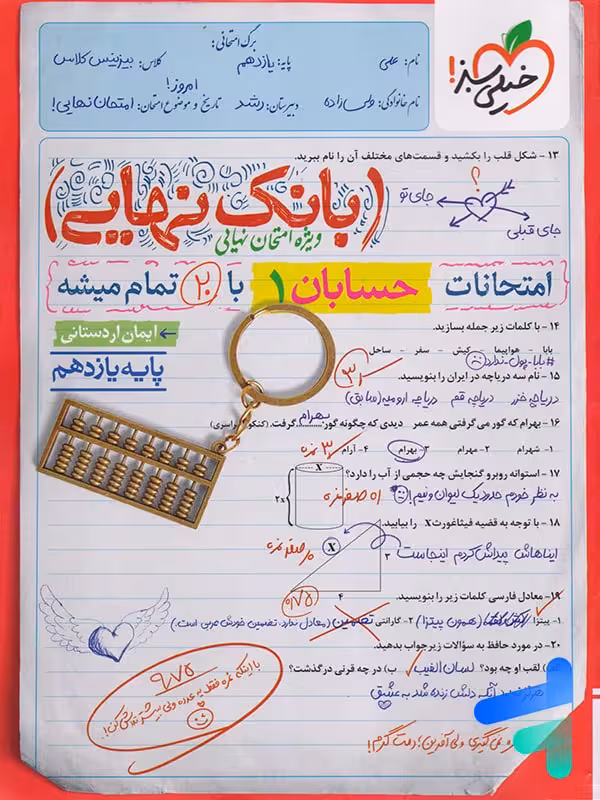 برگ امتحانی:
نام: علی
پایه: یازدهم
کلاس: بیزینس کلاس
نام خانوادگی: ولی‌زاده
دبیرستان: رشد
تاریخ و موضوع امتحان: امروز! امتحان نهایی!
خیلی سبز!
۱۳ - شکل قلب را بکشید و قسمت‌های مختلف آن را نام ببرید.
؟
جای تو
جای قبلی
(بانک نهایی)
ویژه امتحان نهایی
امتحانات حسابان ۱ با ۲۰ تمام میشه
ایمان اردستانی
پایه یازدهم
۱۴ - با کلمات زیر جمله بسازید.
بابا - هواپیما - کیش - سفر - ساحل
#بابا-پول-ندارد
۱۵ - نام سه دریاچه در ایران را بنویسید.
دریاچه خزر دریاچه قم دریاچه ارومیه (سابق)
۱۶ - بهرام که گور می‌گرفتی همه عمر دیدی که چگونه گور بهرام گرفت. (کنکور سراسری)
۱- شهرام ۲- مهرام ۳- بهرام ۴- آرام
۳ نمره
۱۷ - استوانه روبرو گنجایش چه حجمی از آب را دارد؟
X
2x
به نظر خودم حدود یک لیوان و نیم!
صفر نمره
۱۸ - با توجه به قضیه فیثاغورث X را بیابید.
ایناهاش پیداش کردم اینجاست
X
۳
۴
صفر نمره
۰/۷۵
۱۹ - معادل فارسی کلمات زیر را بنویسید.
۱- پیتزا (همون پیتزا) ۲- گارانتی تضمین (معادل ندارد، تضمین خودش عربی است)
۲۰ - در مورد حافظ به سؤالات زیر جواب بدهید.
لقب او چه بود؟ لسان الغیب ب) در چه قرنی درگذشت؟
هرگز نمیرد آنکه دلش زنده شد به عشق
۹/۷۵
با اینکه نمره فقط یه عدده ولی بیشتر تلاش کن!
نمی‌گیری ولی آفرین؛ دمت گرم!